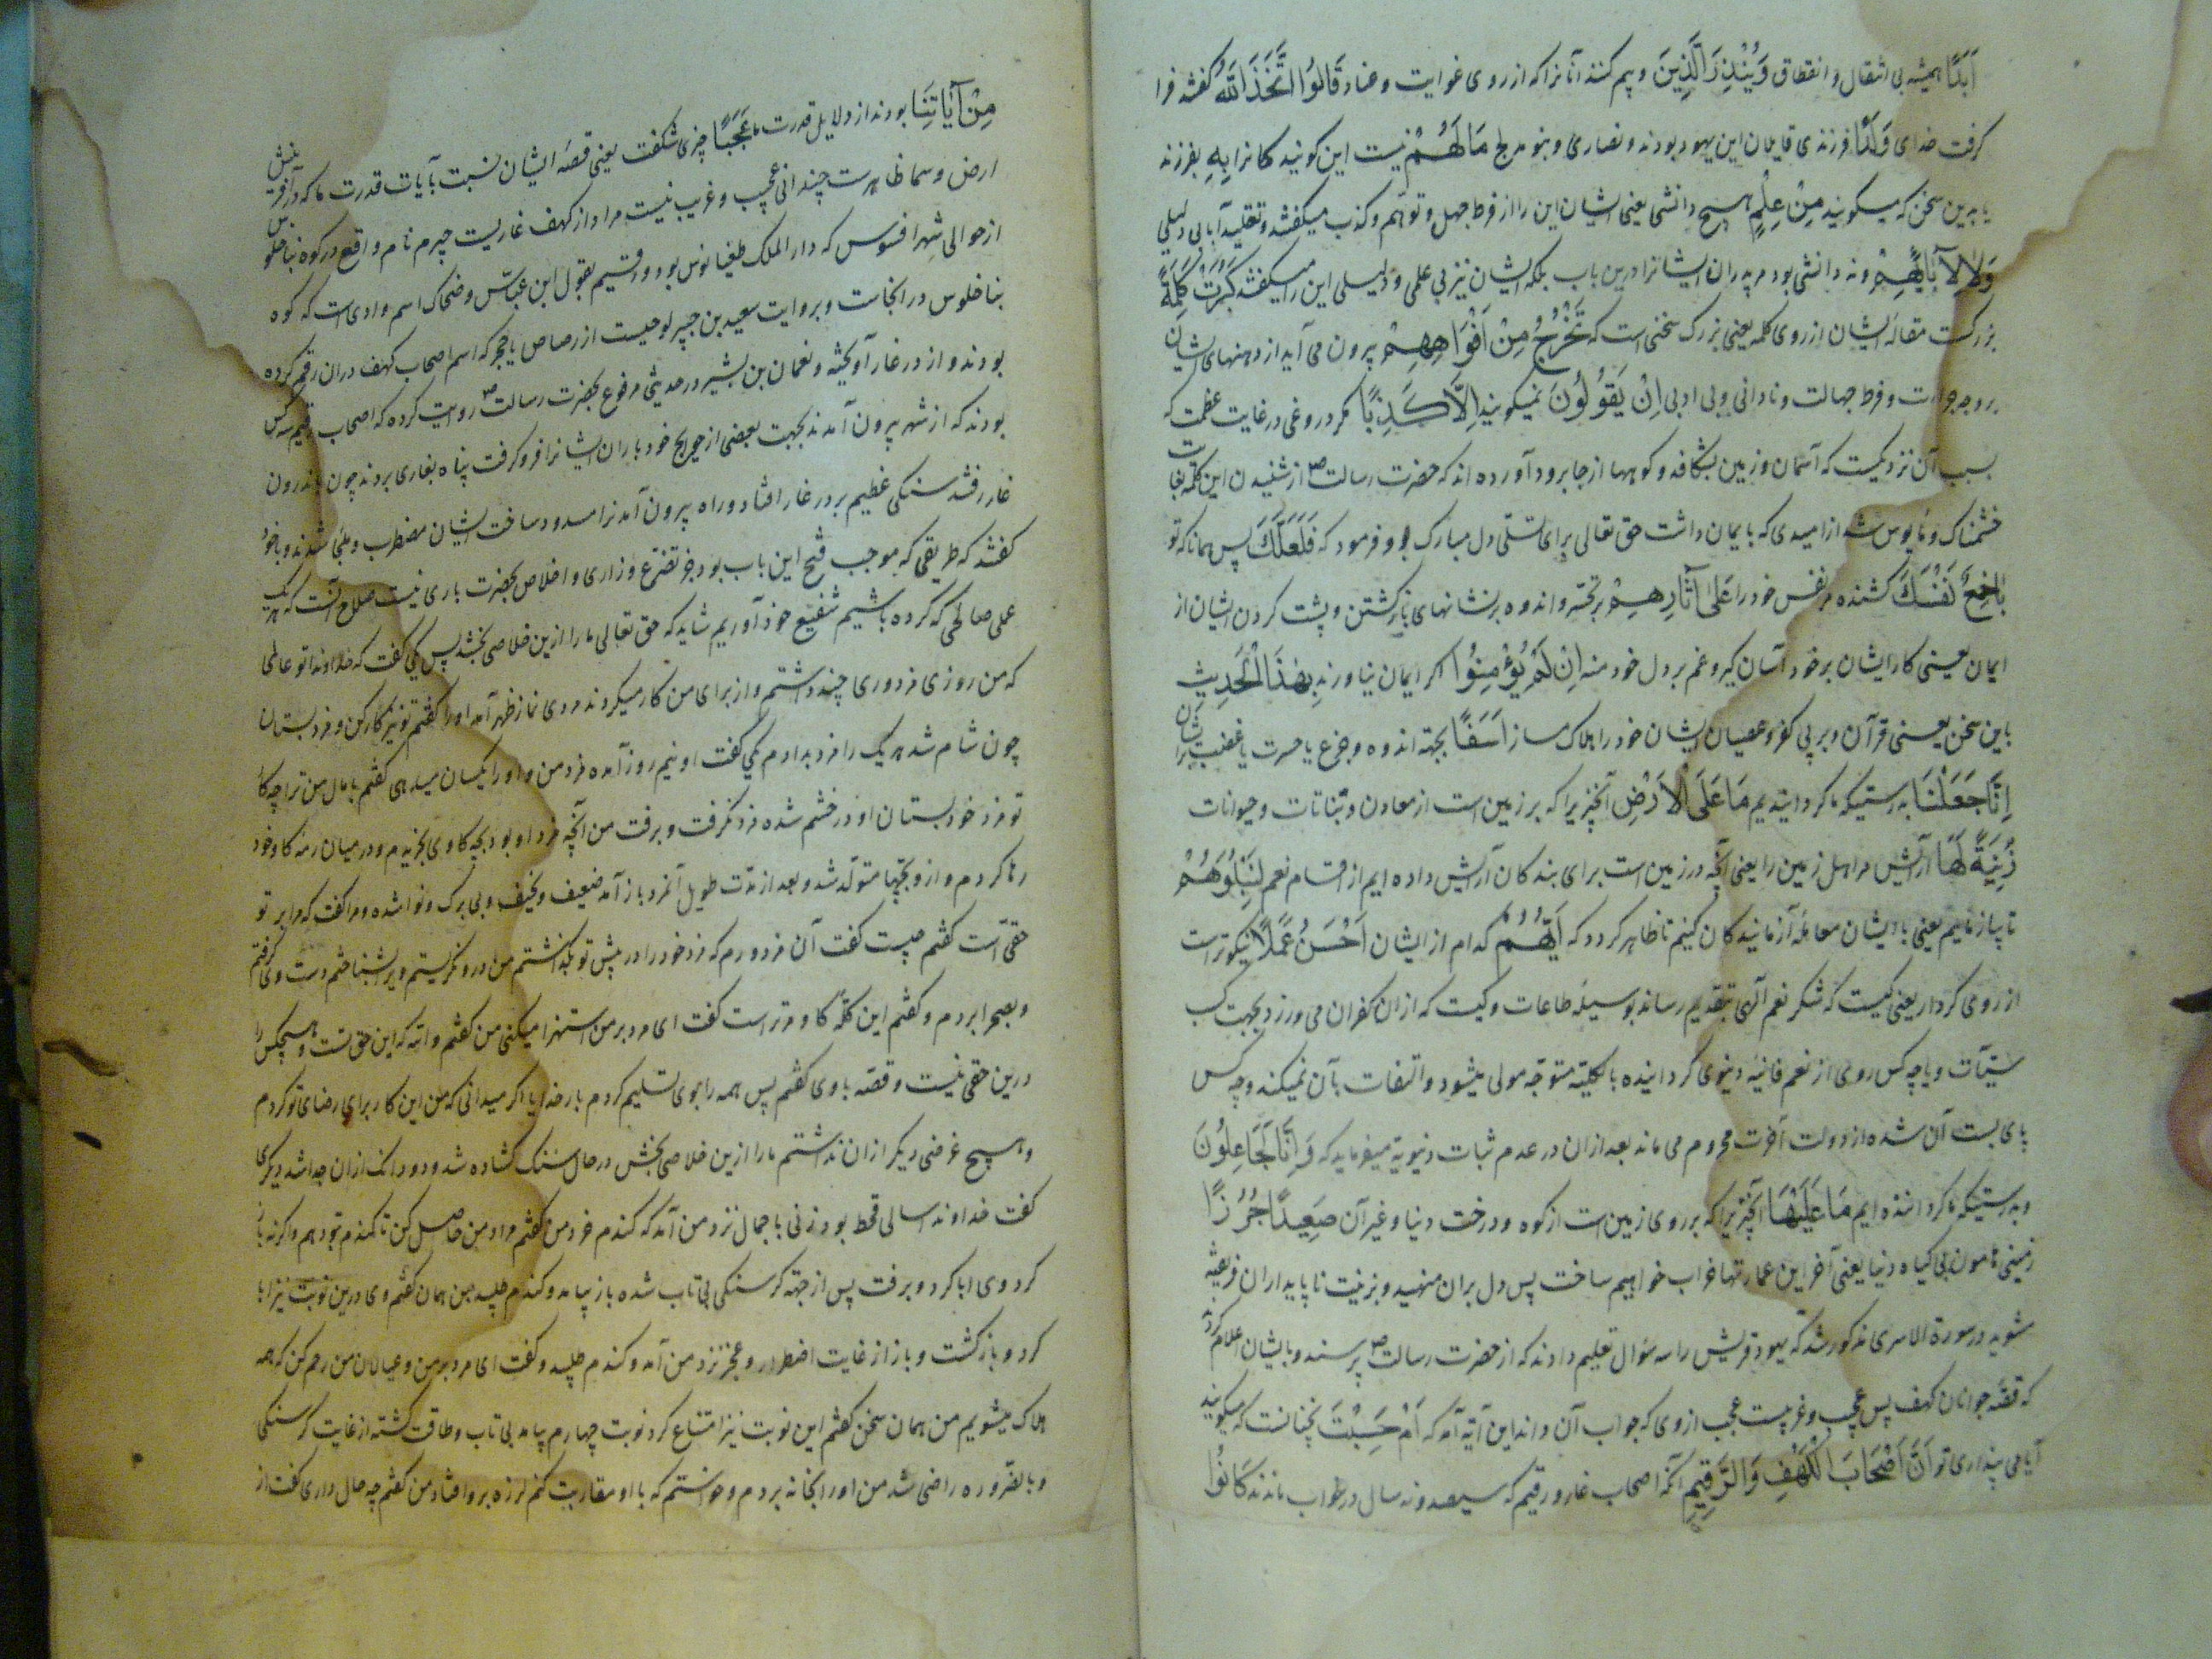 اَبَدًا همیشه بی انتقال و انقطاع وَيُنْذِرَ الَّذِينَ و بیم کند آنانرا که از روی غوایت و عناد قَالُوا اتَّخَذَ اللَّهُ گفتند فرا
گرفت خدای وَلَدًا فرزندی قایلان این یهود بودند و نصاری و بنو مدلج مَا لَهُمْ نیست این گویندکانرا بِهِ بفرزند
یا بدین سخن که میگویند مِنْ عِلْمٍ هیچ دانشی یعنی ایشان این را از فرط جهل و توهم و کذب میگفتند و تقلید آبا بی دلیلی
وَلَا لِآبَائِهِمْ و نه دانشی بود مر پدران ایشانرا درین باب بلکه ایشان نیز بی علمی و دلیلی این را میگفتند كَبُرَتْ كَلِمَةً
بزرکست مقاله ایشان از روی کلمه یعنی بزرک سخنی است که تَخْرُجُ مِنْ اَفْوَاهِهِمْ بیرون می آید از دهنهای ایشان
بر وجه جرات و فرط جهالت و نادانی و بی ادبی اِنْ يَقُولُونَ نمیگویند اِلَّا كَذِبًا مگر دروغی در غایت عظمت که
بسبب آن نزدیکست که آسمان و زمین بشکافد و کوهها از جا برود آورده اند که حضرت رسالت ص از شنیدن این کلمه بغایت
خشمناک و مأیوس شد از امیدی که بایمان داشت حق تعالی برای تسلی دل مبارک او فرمود که فَلَعَلَّكَ پس همانا که تو
بَاخِعٌ نَفْسَكَ کشنده مر نفس خود را عَلَى آثَارِهِمْ بر تحسر و اندوه بر نشانهای بازگشتن و پشت کردن ایشان از
ایمان یعنی کار ایشان بر خود آسان گیر و غم بر دل خود منه اِنْ لَمْ يُؤْمِنُوا اگر ایمان نیاورند بِهَذَا الْحَدِيثِ
باین سخن یعنی قرآن و بر پی کفر و عصیان ایشان خود را هلاک مساز اَسَفًا بجهة اندوه و جزع یا حسرت یا غضب بر ایشان
اِنَّا جَعَلْنَا بدرستیکه ما گردانیدیم مَا عَلَى الْاَرْضِ آنچیزیرا که بر زمین است از معادن و نباتات و حیوانات
زِينَةً لَهَا آرایش مر اهل زمین را یعنی آنچه در زمین است برای بندکان آرایش داده ایم از اقسام نعم لِنَبْلُوَهُمْ
تا بیازماییم یعنی با ایشان معامله آزمایندکان کنیم تا ظاهر کردد که اَيُّهُمْ کدام از ایشان اَحْسَنُ عَمَلًا نیکوترست
از روی کردار یعنی کیست که شکر نعم الهی بتقدیم رساند بوسیله طاعات و کیست که از ان کفران می ورزد بجهت کسب
سیئات و یا چه کس روی از نعم فانیه دنیوی گردانیده بالکلیه متوجه مولی میشود و التفات بآن نمیکند و چه کس
پای بست آن شده از دولت آخرت محروم می ماند بعد از ان در عدم ثبات دنیویه میفرماید که وَاِنَّا لَجَاعِلُونَ
و بدرستیکه ما گرداننده ایم مَا عَلَيْهَا آنچیزیرا که بر روی زمین است از کوه و درخت دنیا و غیر آن صَعِيدًا جُرُزًا
زمینی هامون بی گیاه دنیا یعنی آخر این عمارتها خراب خواهیم ساخت پس دل بر آن منهید و بزینت ناپایدار ان فریفته
مشوید در سورة الاسری مذکور شد که یهود قریش را سه سؤال تعلیم دادند که از حضرت رسالت ص پرسند و بایشان اعلام کردند
که قصه جوانان کهف پس عجیب و غریبست عجب از وی که جواب آن داند این آیة آمد که اَمْ حَسِبْتَ نچنانست که میگویند
آیا می پنداری تو اَنَّ اَصْحَابَ الْكَهْفِ وَالرَّقِيمِ آنکه اصحاب غار و رقیم که سیصد و نه سال در خواب ماندند كَانُوا
مِنْ آيَاتِنَا بودند از دلایل قدرت ما عَجَبًا چیزی شکفت یعنی قصه ایشان نسبت بآیات قدرت ما که در آفرینش
ارض و سما ظاهرست چندانی عجیب و غریب نیست مراد از کهف غاریست جیرم نام واقع در کوه بناخلوس
از حوالی شهر افسوس که دار الملک طقیانوس بود و رقیم بقول ابن عباس و ضحاک اسم وادی است که کوه
بناخلوس در انجاست و بروایت سعید بن جبیر لوحیست از رصاص یا حجر که اسم اصحاب کهف دران رقم کرده
بودند و از در غار آویخته و نعمان بن بشیر در حدیثی مرفوع بحضرت رسالت ص روایت کرده که اصحاب رقیم سه کس
بودند که از شهر بیرون آمدند بجهت بعضی از حوایج خود باران ایشانرا فرو گرفت پناه بغاری بردند چون باندرون
غار رفتند سنگی عظیم بر در غار افتاد و راه بیرون آمدنرا مسدود ساخت ایشان مضطرب و ملتجی شدند و با خود
گفتند که طریقی که موجب فتح این باب بود جز تضرع و زاری و اخلاص بحضرت باری نیست صلاح آنست که هر یک
عملی صالحی که کرده باشیم شفیع خود آوریم شاید که حق تعالی ما را ازین خلاصی بخشد پس یکی گفت که خداوندا تو عالمی
که من روزی مزدوری چند داشتم و از برای من کار میکردند مردی نماز ظهر آمد او را گفتم تو نیز کار کن و مزد بستان
چون شام شد هر یک را مزد بدادم یکی گفت او نیم روز آمده مزد من و او را یکسان میدهی گفتم با مال من ترا چه کار
تو مزد خود بستان او در خشم شده مزد نگرفت و برفت من آنچه مزد او بود بچه گاوی بخریدم و در میان رمه گاو خود
رها کردم و از و بچها متولد شد و بعد از مدت طویل آنمرد باز آمد ضعیف و نحیف و بی برک و نوا شده و مرا گفت که مرا بر تو
حقی است گفتم چیست گفت آن مزدورم که مزد خود را در پیش تو بگذاشتم من درو نگریستم ویرا شناختم دست وی گرفتم
و بصحرا بردم و گفتم این گله گاو مر تراست گفت ای مرد بر من استهزا میکنی من گفتم والله که این حق تست و هیچکس را
درین حقی نیست و قصه با وی گفتم پس همه را بوی تسلیم کردم بار خدایا اگر میدانی که من این کار برای رضای تو کردم
و هیچ غرضی دیگر ازان نداشتم ما را ازین خلاصی بخش در حال سنگ گشاده شد و دو دانگ ازان جدا شد دیگری
گفت خداوندا سالی قحط بود زنی با جمال نزد من آمد که گندم خرد من گفتم مراد من حاصل کن تا گندم بتو دهم و اگر نه باز
کرد وی ابا کرد و برفت پس از جهة گرسنگی بی تاب شده باز بیامد و گندم طلبید من همان گفتم وی درین نوبت نیز ابا
کرد و بازگشت و باز از غایت اضطرار و عجز نزد من آمد و گندم طلبید و گفت ای مرد بر من و عیالان من رحم کن که همه
هلاک میشویم من همان سخن گفتم این نوبت نیز امتناع کرد نوبت چهارم بیامد بی تاب و طاقت گشته از غایت گرسنگی
و بالضروره راضی شد من او را بخانه بردم و خواستم که با او مقاربت کنم لرزه برو افتاد من گفتم چه حال داری گفت از